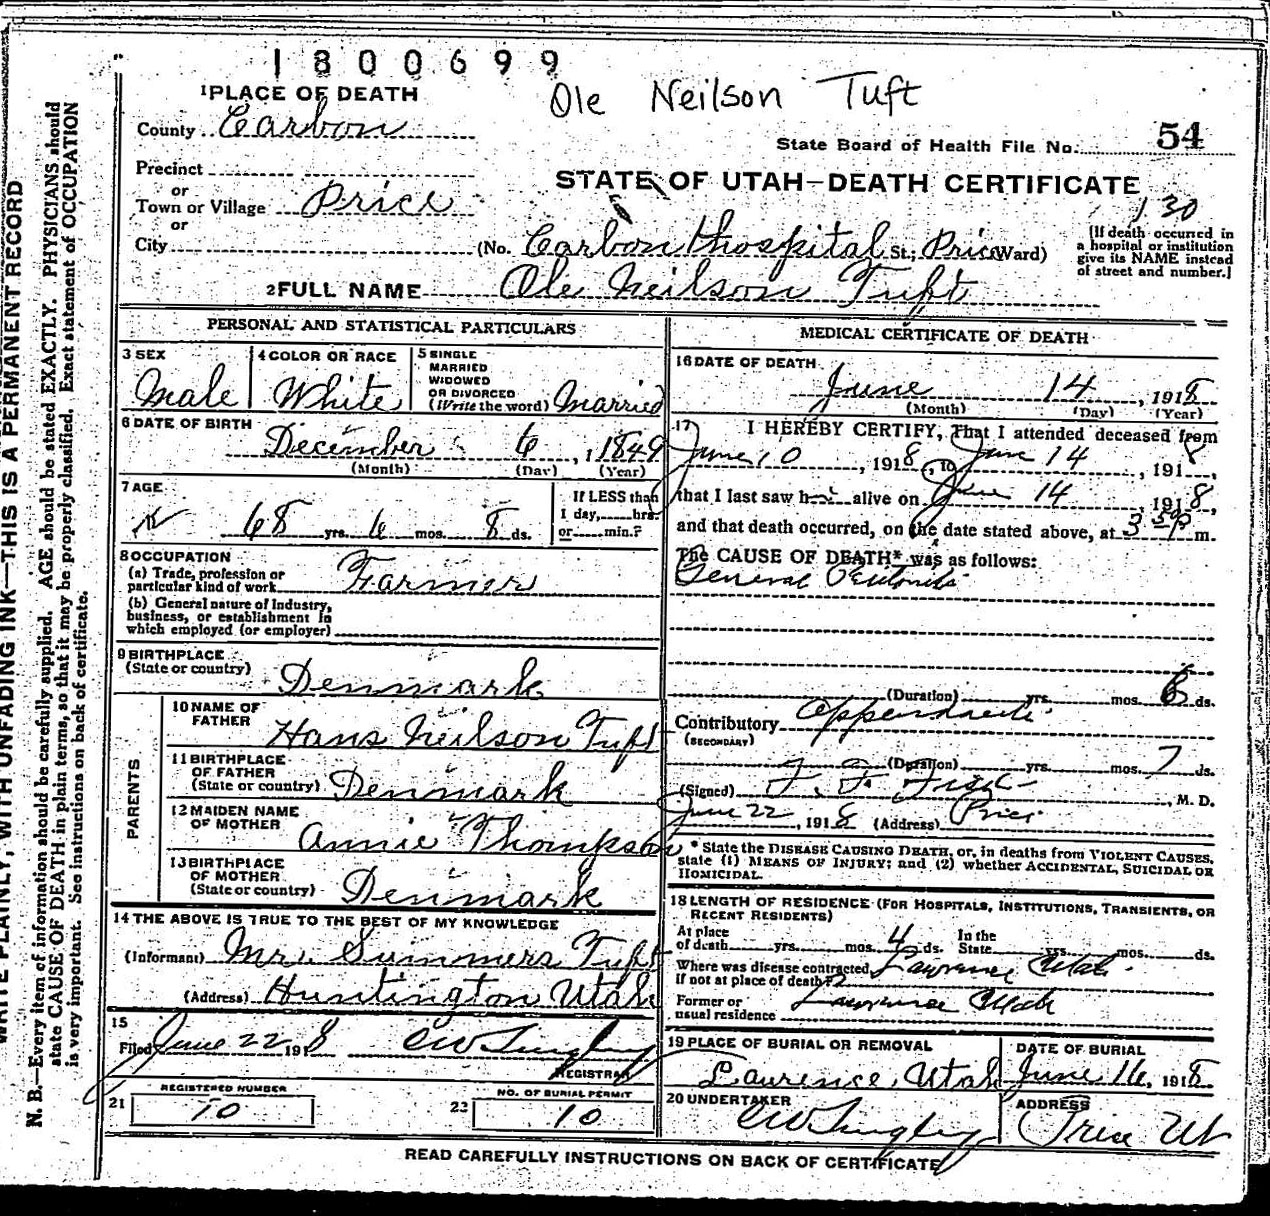 1800699
Ole Neilson Tuft
1 PLACE OF DEATH
County Carbon
State Board of Health File No. 54
Precinct
or
Town or Village Price
or
City
STATE OF UTAH—DEATH CERTIFICATE
130
(No. Carbon Hospital St; Price Ward)
[If death occurred in
a hospital or institution
give its NAME instead
of street and number.]
2 FULL NAME Ole Neilson Tuft
PERSONAL AND STATISTICAL PARTICULARS
3 SEX
Male
4 COLOR OR RACE
White
5 SINGLE
MARRIED
WIDOWED
OR DIVORCED
(Write the word) Married
6 DATE OF BIRTH
December 6, 1849
(Month) (Day) (Year)
7 AGE
68 yrs. 6 mos. 8 ds.
If LESS than
1 day, hrs.
or min.?
8 OCCUPATION
(a) Trade, profession or
particular kind of work Farmer
(b) General nature of Industry,
business, or establishment in
which employed (or employer)
9 BIRTHPLACE
(State or country) Denmark
PARENTS
10 NAME OF
FATHER Hans Neilson Tuft
11 BIRTHPLACE
OF FATHER
(State or country) Denmark
12 MAIDEN NAME
OF MOTHER Annie Thompson
13 BIRTHPLACE
OF MOTHER
(State or country) Denmark
14 THE ABOVE IS TRUE TO THE BEST OF MY KNOWLEDGE
(Informant) Mr. Summers Tuft
(Address) Huntington Utah
15
Filed June 22 1918
REGISTRAR
REGISTERED NUMBER
21 10
NO. OF BURIAL PERMIT
22 10
MEDICAL CERTIFICATE OF DEATH
16 DATE OF DEATH
June 14, 1918
(Month) (Day) (Year)
17 I HEREBY CERTIFY, That I attended deceased from
June 10, 1918, to June 14, 1918,
that I last saw him alive on June 14, 1918,
and that death occurred, on the date stated above, at 3 50 P m.
The CAUSE OF DEATH* was as follows:
General Peritonitis
(Duration) yrs. mos. 6 ds.
Contributory Appendicitis
(SECONDARY)
(Duration) yrs. mos. 7 ds.
(Signed) F. F. Fisk, M. D.
June 22, 1918 (Address) Price
* State the DISEASE CAUSING DEATH, or, in deaths from VIOLENT CAUSES,
state (1) MEANS OF INJURY; and (2) whether ACCIDENTAL, SUICIDAL OR
HOMICIDAL.
18 LENGTH OF RESIDENCE (FOR HOSPITALS, INSTITUTIONS, TRANSIENTS, OR
RECENT RESIDENTS)
At place
of death yrs. mos. 4 ds. In the
State yrs. mos. ds.
Where was disease contracted Lawrence Utah.
If not at place of death?
Former or
usual residence Lawrence Utah
19 PLACE OF BURIAL OR REMOVAL
Laurence, Utah
DATE OF BURIAL
June 16, 1918
20 UNDERTAKER
ADDRESS
Price Ut
READ CAREFULLY INSTRUCTIONS ON BACK OF CERTIFICATE
WRITE PLAINLY, WITH UNFADING INK—THIS IS A PERMANENT RECORD
N. B.—Every item of information should be carefully supplied. AGE should be stated EXACTLY. PHYSICIANS should
state CAUSE OF DEATH in plain terms, so that it may be properly classified. Exact statement of OCCUPATION
is very important. See instructions on back of certificate.